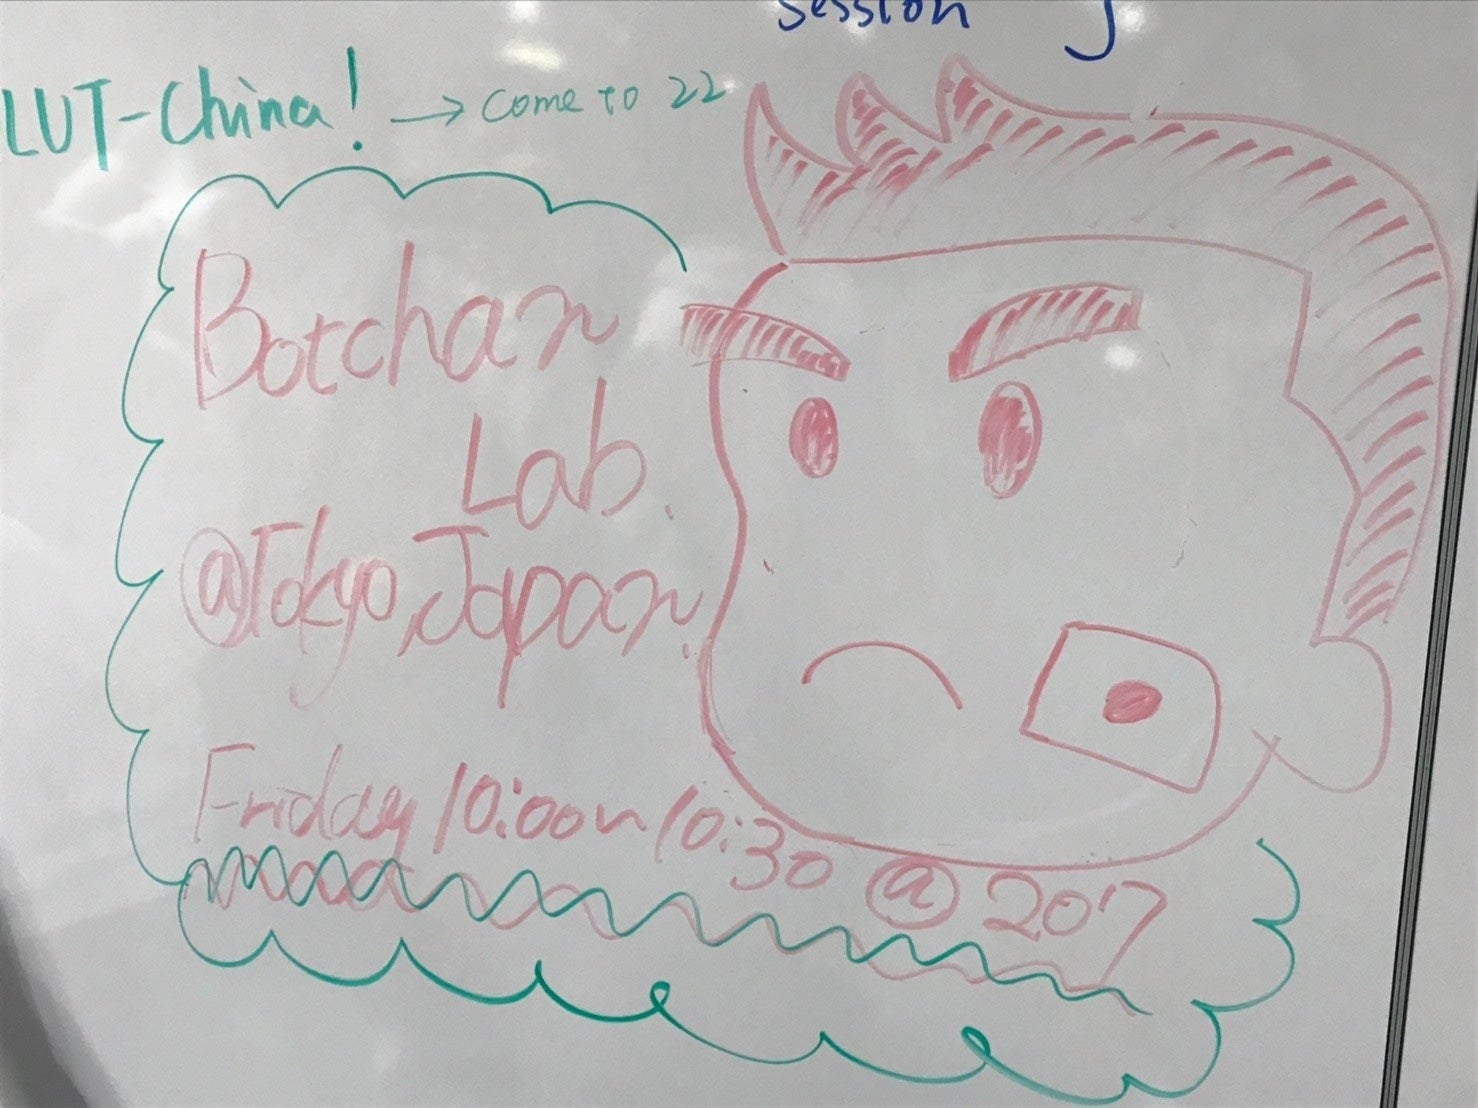 session
LUT-China! → come to 22
Botchan
Lab.
@Tokyo, Japan.
Friday 10:00~10:30 @ 207